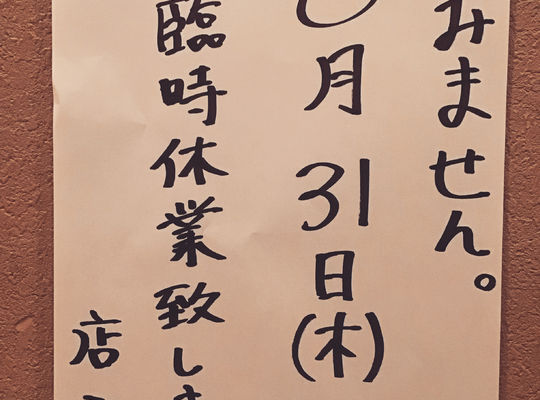 みません。
月31日(木)
臨時休業致しま
店